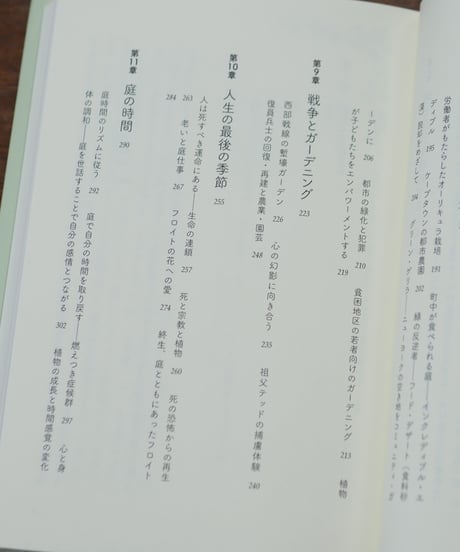 労働者がもたらしたオーリキュラ栽培 191 町中が食べられる庭――インクレディブル・エ
ディブル 195 ケープタウンの都市農園 202 緑の反逆者――フード・デザート（食料砂
ーデンに 206 都市の緑化と犯罪 210 貧困地区の若者向けのガーデニング 213 植物
が子どもたちをエンパワーメントする 219
第9章 戦争とガーデニング 223
西部戦線の塹壕ガーデン 226 心の幻影に向き合う 235 祖父テッドの捕虜体験 240
復員兵士の回復・再建と農業・園芸 248
第10章 人生の最後の季節 255
人は死すべき運命にある――生命の連鎖 257 死と宗教と植物 260 死の恐怖からの再生
263 老いと庭仕事 267 フロイトの花への愛 274 終生、庭とともにあったフロイト
284
第11章 庭の時間 290
庭時間のリズムに従う 292 庭で自分の時間を取り戻す――燃えつき症候群 297 心と身
体の調和――庭を世話することで自分の感情とつながる 302 植物の成長と時間感覚の変化